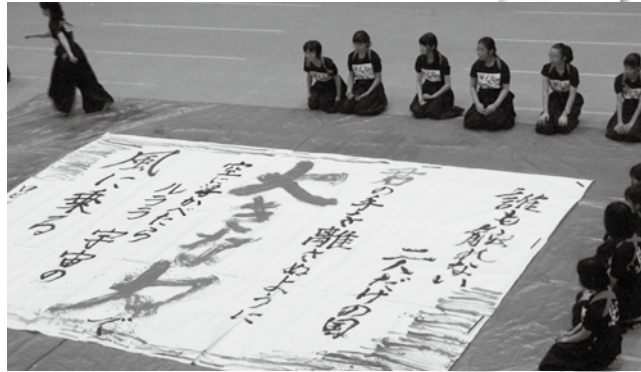 誰も触れない
二人だけの国
君の手を離さぬように
大きな力で
空に浮かべたら
ルララ 宇宙の
風に乗る